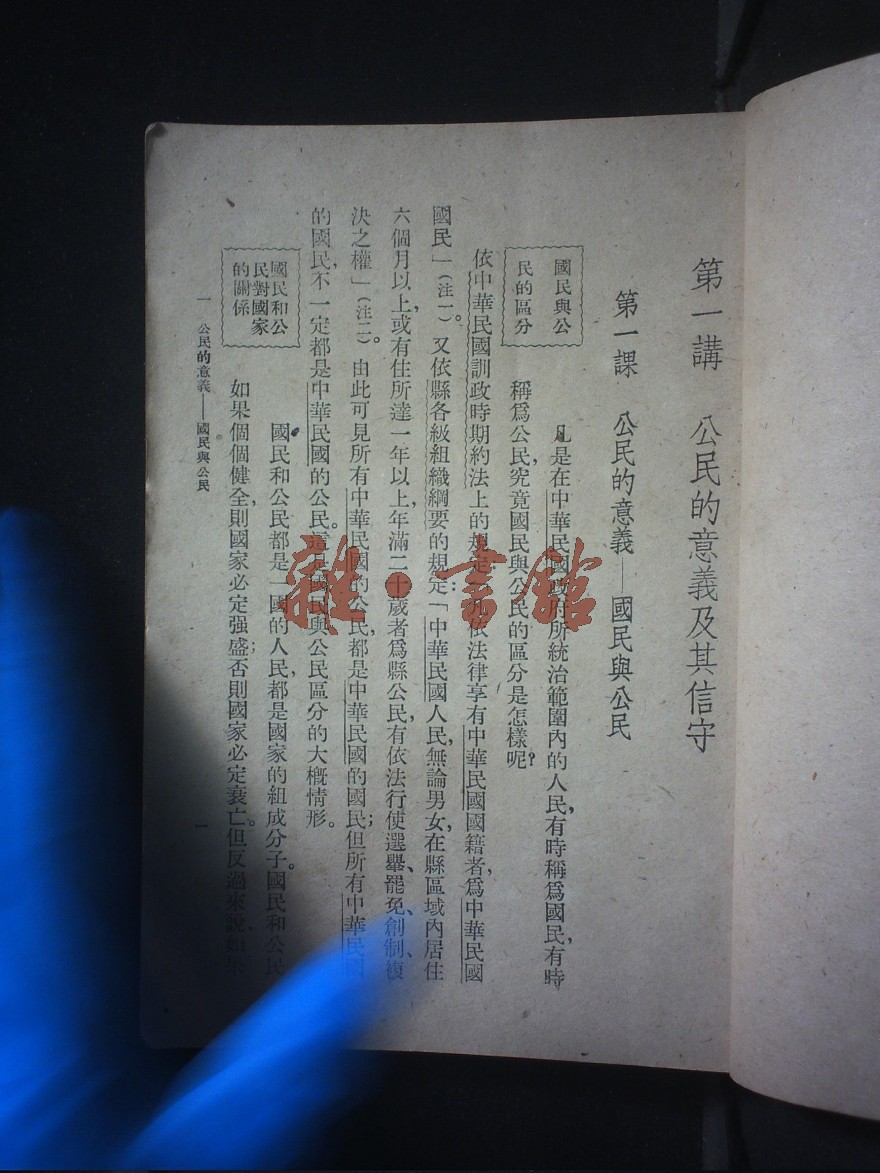 第一講　公民的意義及其信守
第一課　公民的意義——國民與公民
國民與公
民的區分
凡是在中華民國政府所統治範圍內的人民，有時稱爲國民，有時
稱爲公民，究竟國民與公民的區分是怎樣呢？
依中華民國訓政時期約法上的規定：凡依法律享有中華民國國籍者，爲中華民國
國民」（注一）。又依縣各級組織綱要的規定：「中華民國人民，無論男女，在縣區域內居住
六個月以上，或有住所達一年以上，年滿二十歲者爲縣公民，有依法行使選舉、罷免、創制、複
決之權」（注二）。由此可見所有中華民國的公民，都是中華民國的國民；但所有中華民國
的國民，不一定都是中華民國的公民。這是國民與公民區分的大槪情形。
國民和公
民對國家
的關係
國民和公民都是一國的人民，都是國家的組成分子。國民和公民
如果個個健全，則國家必定强盛；否則國家必定衰亡。但反過來說，如果
一　公民的意義——國民與公民
一
雜·書館